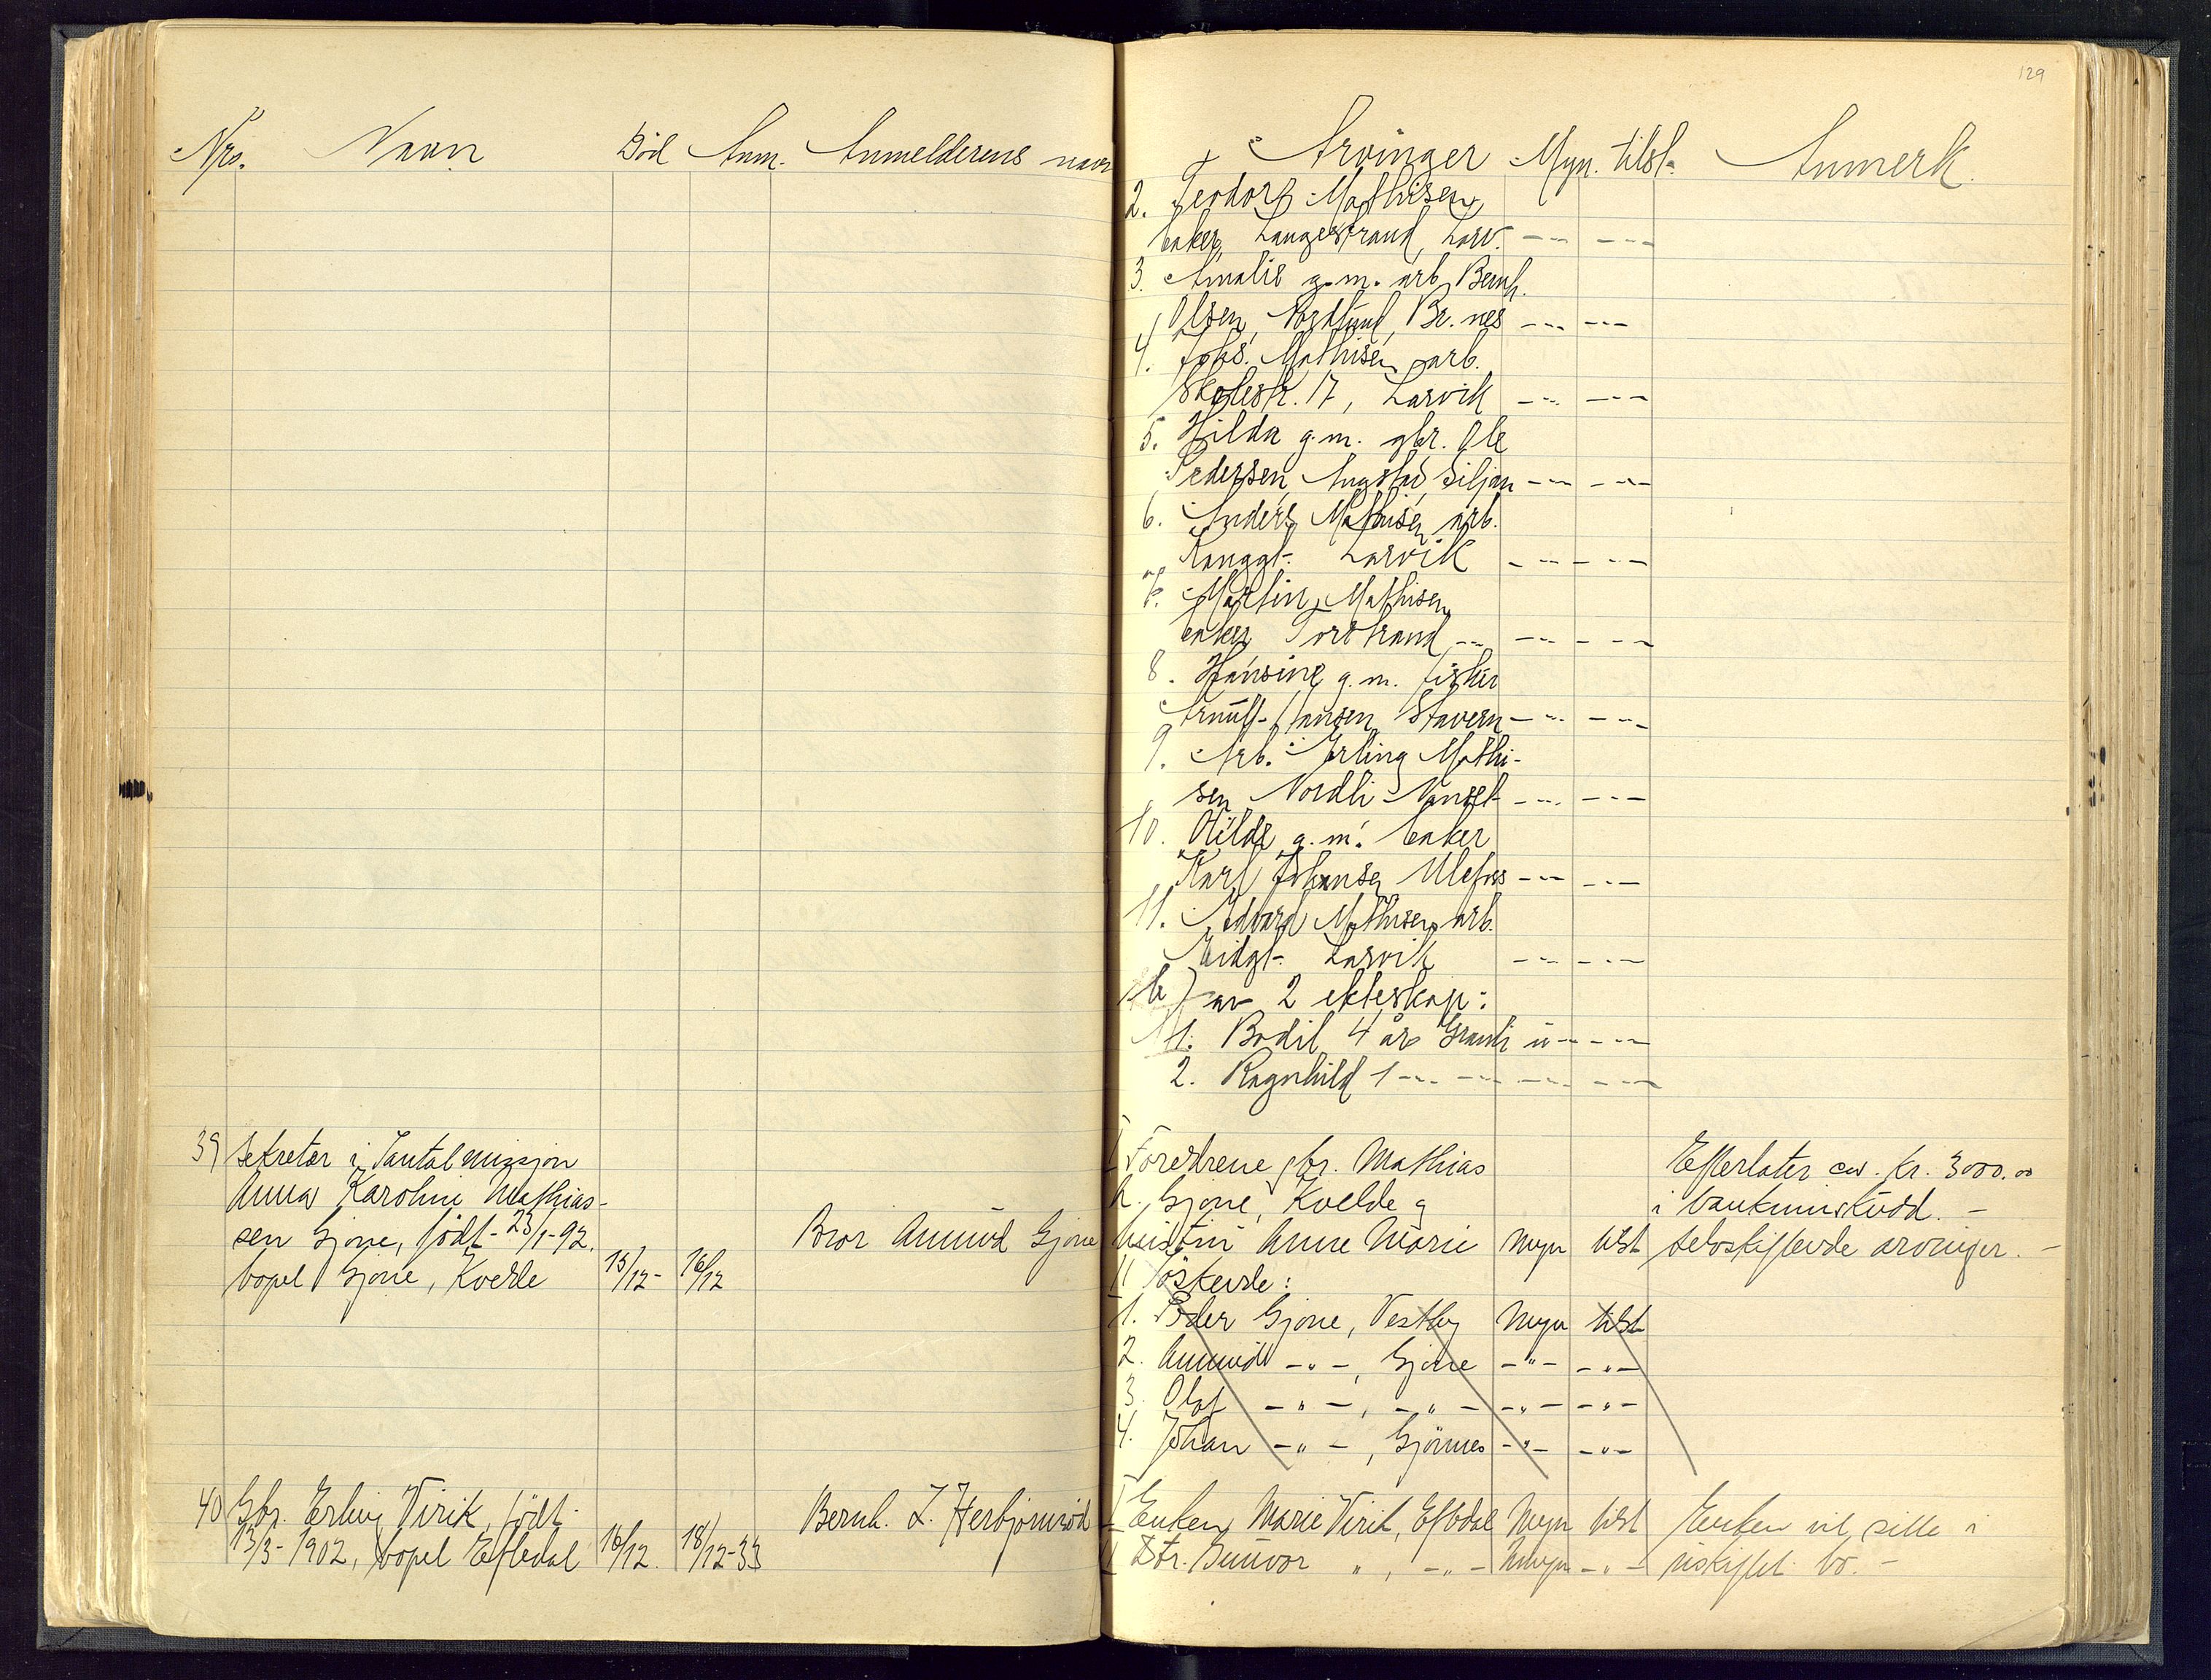 Nro. Navn Död Anm. Anmelderens navn
39 Sekretær i Santalmisjon
Anna Karoline Mathias-
sen Gjone, födt 23/1-92.
bopel Gjone, Kvelde 15/12- 16/12 Bror Amund Gjone
40 Gbr. Erling Virik, födt
13/3-1902, bopel Eftedal 16/12. 18/12-33 Bernh. L. Herbjörnröd
129
Arvinger Myn. tilst. Anmerk.
2. Teodor Mathisen
baker, Langestrand, Larv. -"- -"-
3. Amalie g.m. arb. Bernh.
Olsen, Nordlund, Br.nes -"- -"-
4. Johs. Mathisen arb.
Skolestr. 17, Larvik -"- -"-
5. Hilda g.m. gbr. Ole
Pedersen Siljan -"- -"-
6. Anders Mathisen arb.
Larvik -"- -"-
7. Martin Mathisen
baker Torstrand -"- -"- -"-
8. Hansine g.m. fisker
Arnulf Hansen Stavern -"- -"-
9. Arb. Erling Mathi-
sen Nordli Nanset -"- -"-
10. g.m. baker
Karl Johansen Ulefoss -"- -"-
11. Edvard Mathisen arb.
Larvik -"- -"-
b) av 2 ekteskap:
1. Bodil 4 år Granli u -"- -"-
2. Ragnhild 1 -"- -"- -"- -"-
I Foreldrene gbr. Mathias Efterlater ca. kr. 3000.00
A. Gjone, Kvelde og i bankinnskudd. -
hustru Anne Marie Myn tilst selvskiftende arvinger. -
II Söskende:
1. Peder Gjone, Vestby Myn tilst
2. Amund -"-, Gjone -"- -"-
3. Olaf -"-, -"- -"- -"-
4. Johan -"-, Gjönnes -"- -"-
I Enken Marie Virik, Eftedal Myn tilst Enken vil sitte i
II Dtr. Gunvor ", -"- Umyn -"- uskiftet bo. -